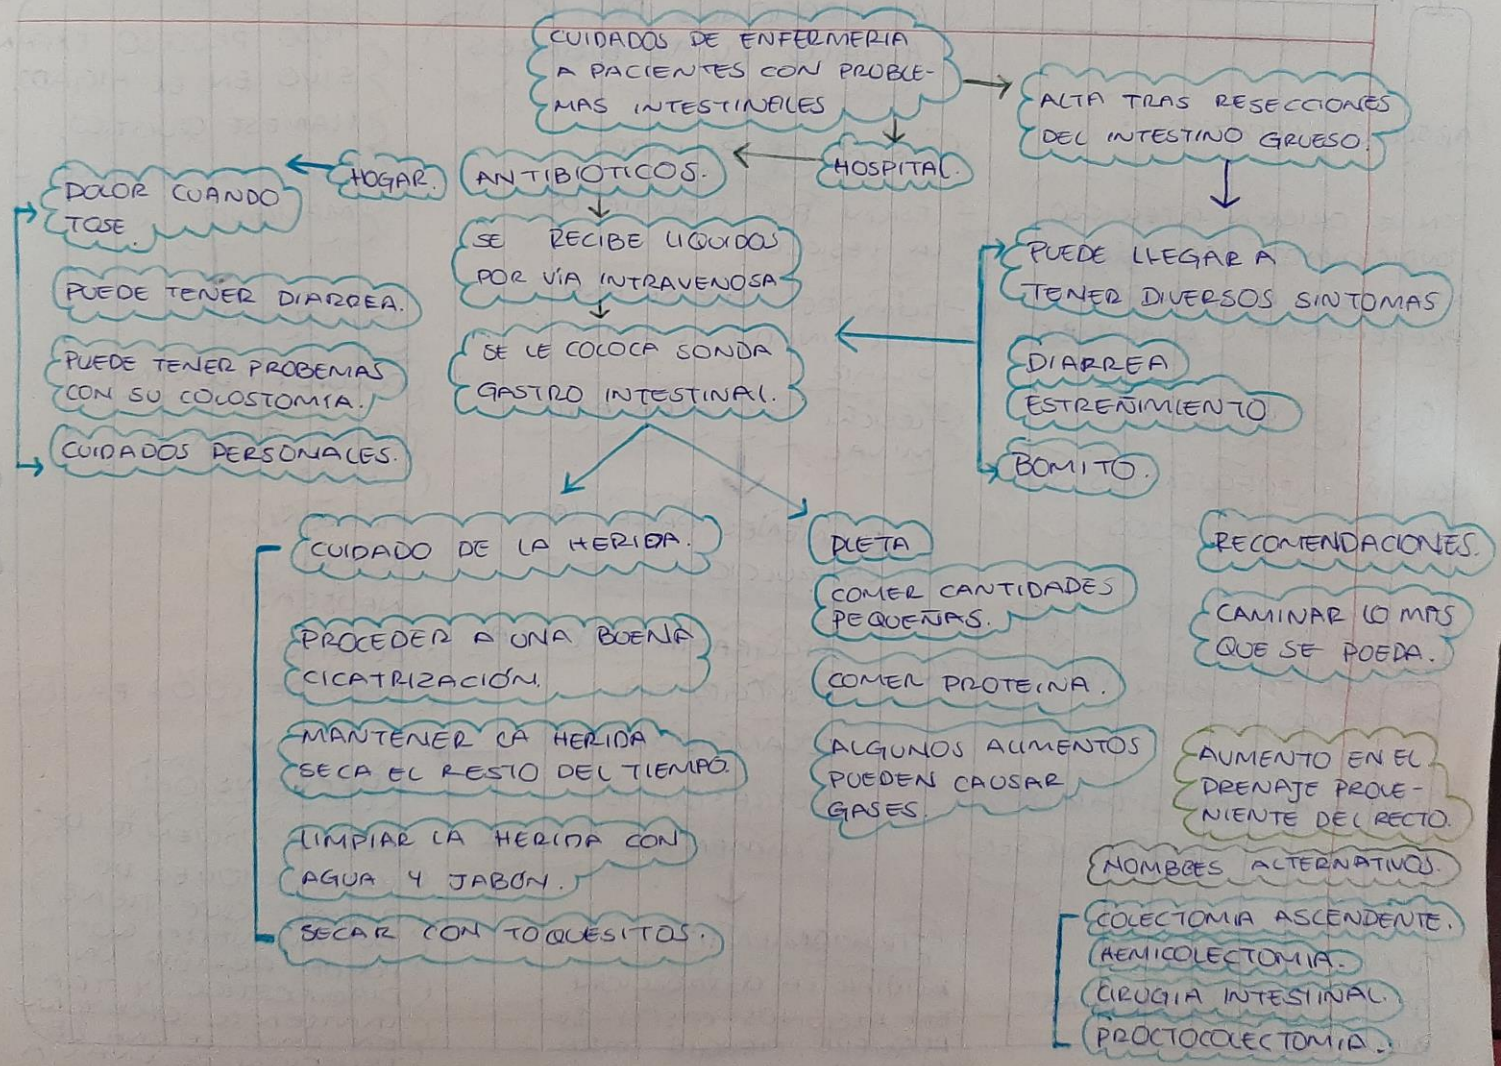 CUIDADOS DE ENFERMERIA
A PACIENTES CON PROBLE-
MAS INTESTINELES
ALTA TRAS RESECCIONES
DEL INTESTINO GRUESO.
HOSPITAL.
ANTIBIOTICOS.
HOGAR.
DOLOR CUANDO
TOSE.
PUEDE TENER DIARREA.
PUEDE TENER PROBEMAS
CON SU COLOSTOMIA.
CUIDADOS PERSONALES.
SE RECIBE LIQUIDOS
POR VÍA INTRAVENOSA
SE LE COLOCA SONDA
GASTRO INTESTINAL.
PUEDE LLEGAR A
TENER DIVERSOS SINTOMAS
DIARREA
ESTREÑIMIENTO
BOMITO.
CUIDADO DE LA HERIDA.
PROCEDER A UNA BUENA
CICATRIZACIÓN.
MANTENER LA HERIDA
SECA EL RESTO DEL TIEMPO.
LIMPIAR LA HERIDA CON
AGUA Y JABÓN.
SECAR CON TOQUESITOS.
DIETA
COMER CANTIDADES
PEQUEÑAS.
COMER PROTEINA.
ALGUNOS ALIMENTOS
PUEDEN CAUSAR
GASES.
RECOMENDACIONES.
CAMINAR LO MAS
QUE SE PUEDA.
AUMENTO EN EL
DRENAJE PROVE-
NIENTE DEL RECTO.
NOMBRES ALTERNATIVOS.
COLECTOMIA ASCENDENTE.
HEMICOLECTOMIA.
CIRUGIA INTESTINAL.
PROCTOCOLECTOMIA.